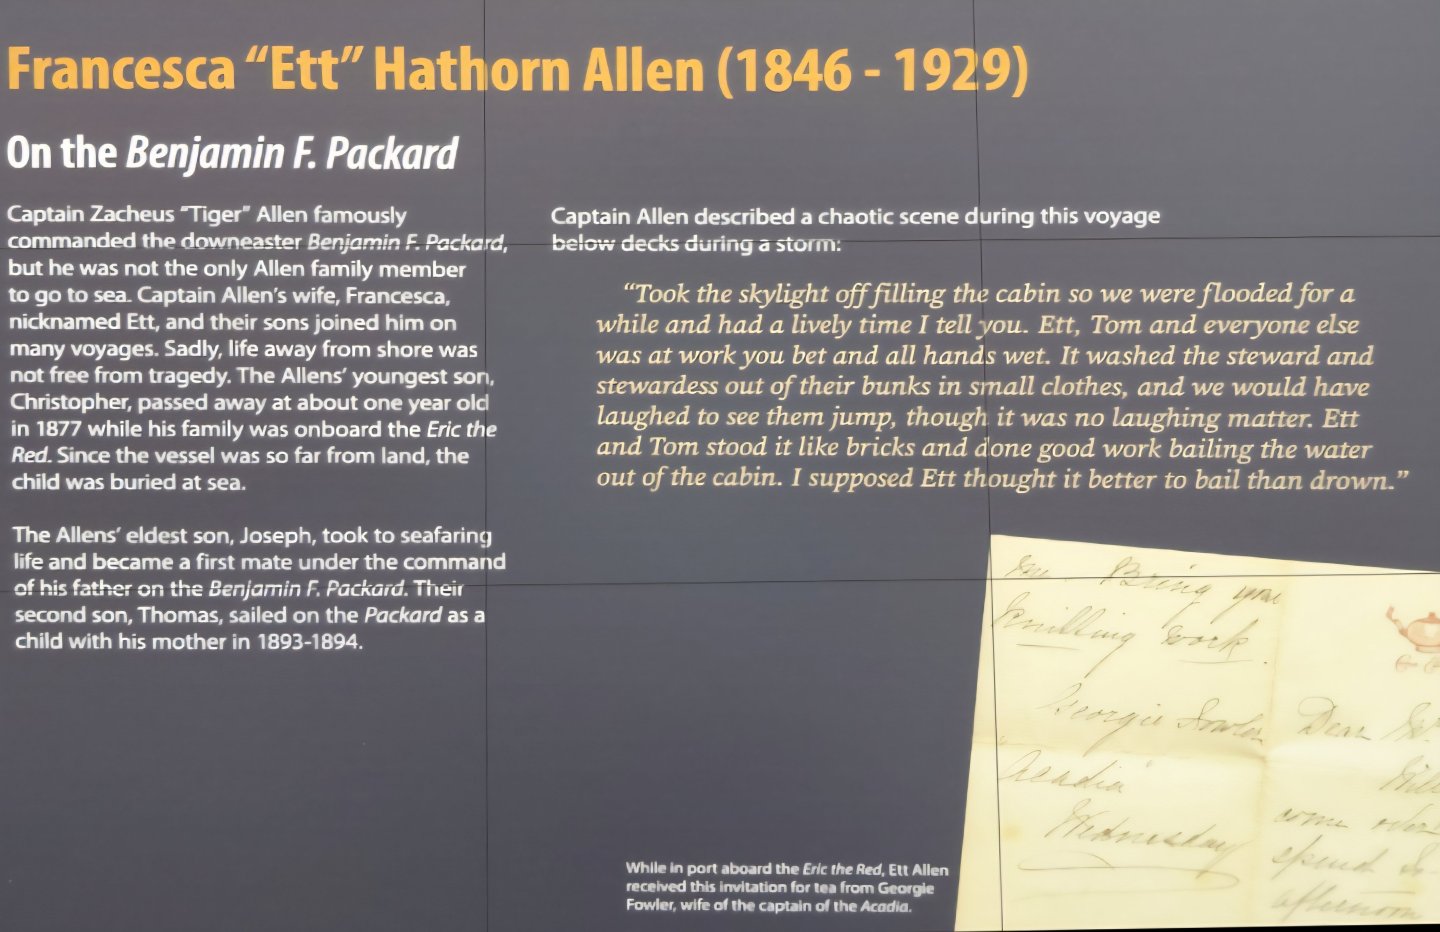 Francesca “Ett” Hathorn Allen (1846 - 1929)
On the Benjamin F. Packard
Captain Zacheus “Tiger” Allen famously
commanded the downeaster Benjamin F. Packard,
but he was not the only Allen family member
to go to sea. Captain Allen’s wife, Francesca,
nicknamed Ett, and their sons joined him on
many voyages. Sadly, life away from shore was
not free from tragedy. The Allens’ youngest son,
Christopher, passed away at about one year old
in 1877 while his family was onboard the Eric the
Red. Since the vessel was so far from land, the
child was buried at sea.
The Allens’ eldest son, Joseph, took to seafaring
life and became a first mate under the command
of his father on the Benjamin F. Packard. Their
second son, Thomas, sailed on the Packard as a
child with his mother in 1893-1894.
Captain Allen described a chaotic scene during this voyage
below decks during a storm:
“Took the skylight off filling the cabin so we were flooded for a
while and had a lively time I tell you. Ett, Tom and everyone else
was at work you bet and all hands wet. It washed the steward and
stewardess out of their bunks in small clothes, and we would have
laughed to see them jump, though it was no laughing matter. Ett
and Tom stood it like bricks and done good work bailing the water
out of the cabin. I supposed Ett thought it better to bail than drown.”
Bring your
work.
Georgie Fowler
Acadia
Wednesday
Dear
come over
spend
afternoon
While in port aboard the Eric the Red, Ett Allen
received this invitation for tea from Georgie
Fowler, wife of the captain of the Acadia.